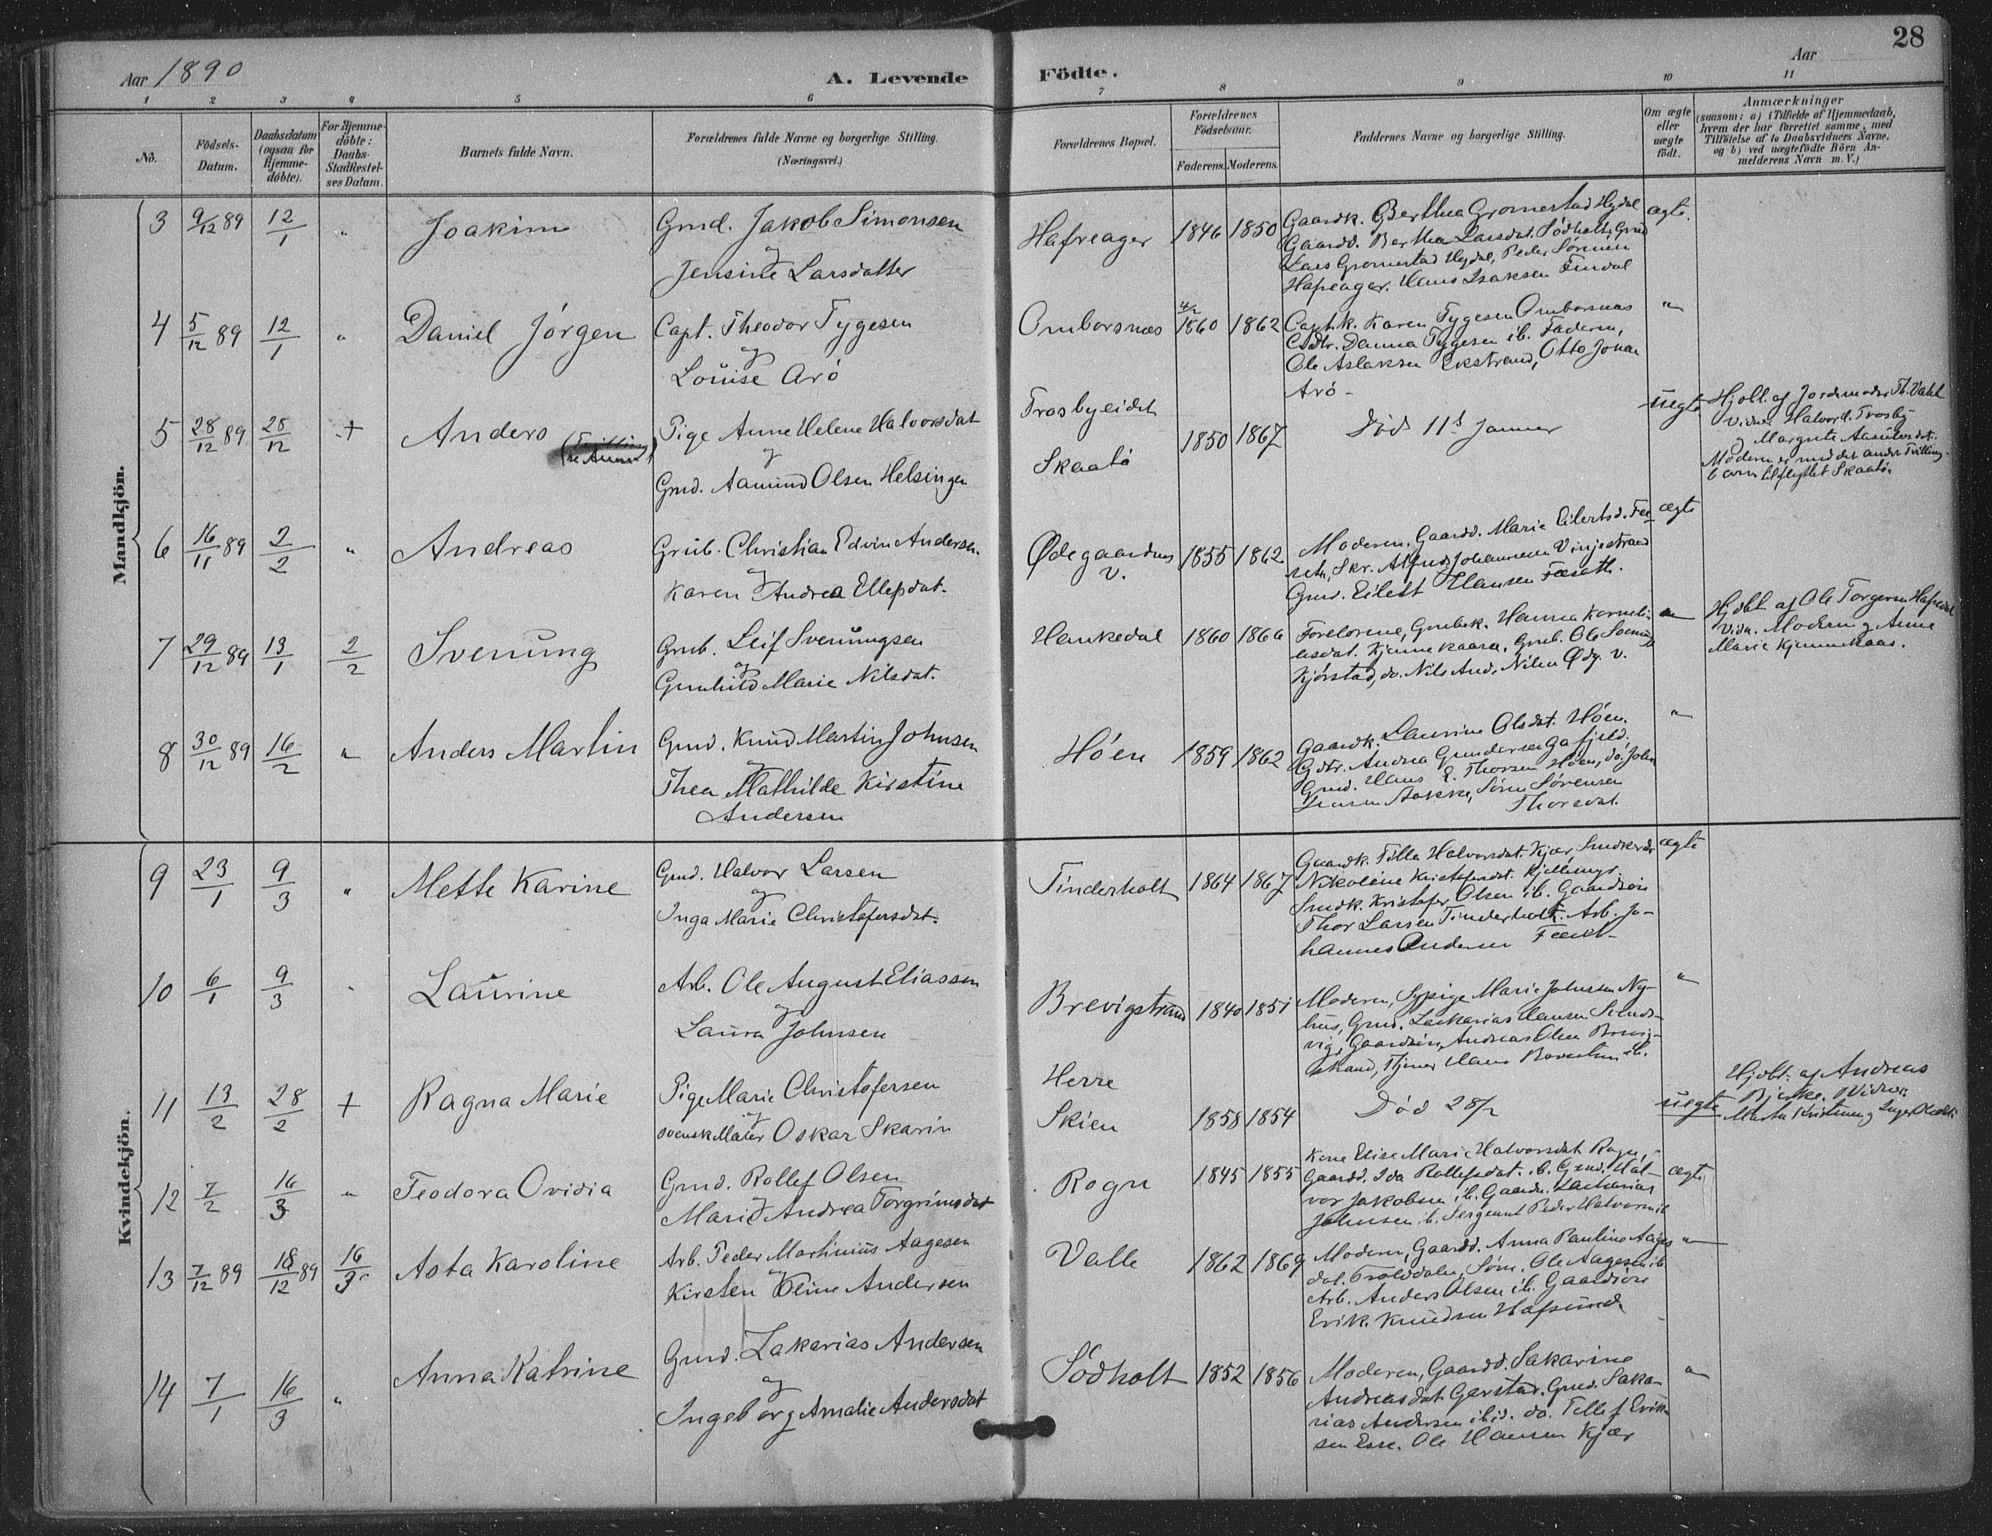 28
Aar 1890
A. Levende Födte.
Aar
1 2 3 4 5 6 7 8 9 10 11
No.
Födsels-Datum.
Daabsdatum (ogsaa for Hjemme-döbte).
For Hjemme-döbte: Daabs-Stadfæstel-ses Datum.
Barnets fulde Navn.
Forældrenes fulde Navne og borgerlige Stilling.
(Næringsvei.)
Forældrenes Bopæl.
Forældrenes Födselsaar.
Faderens. Moderens.
Faddernes Navne og borgerlige Stilling.
Om ægte eller uægte födt.
Anmærkninger
(saasom: a) i Tilfælde af Hjemmedaab,
hvem der har forrettet samme, med
Tilföielse af to Daabsvidners Navne,
og b) ved uægtefödte Börn An-
melderens Navn m. V.)
Mandkjön.
3 9/12 89 12/1 " Joakim Gmd. Jakob Simonsen
og
Jensine Larsdatter
Hafreager 1846 1850
Gaardk. Berthea Gromestad Hydal
Gaardd. Berthea Larsdat. Södholt, Gmd
Lars Gromestad Hydal, Peder Sörensen
Hafreager. Hans Isaksen Findal
ægte.
4 5/12 89 12/1 " Daniel Jörgen Capt. Theodor Tygesen
og
Louise Arö
Omborsnæs 4/2 1860 1862
Captk. Karen Tygesen Omborsnæs
Cdtr. Danna Tygesen ib. Faderen,
Ole Aslaksen Ekstrand, Otto Johan
Arö -
"
5 28/12 89 28/12 + Anders
Pige Anne Helene Halvorsdat
og
Gmd. Aamund Olsen Helsingen
Trosbyeidet
Skaatö
1850 1867
Död 11te Januar
uegte
Hjdbt. af Jordmoder Th. Vahl
Vidner Halvor Trosby
og Margrete Aasulvsdat.
Moderen er med det andet Tvilling-
barn tilflyttet Skaatö.
6 16/11 89 2/2 " Andreas Grub. Christian Edvin Andersen
og
Karen Andrea Ellefsdat.
Ødegaarden V. 1855 1862
Moderen, Gaardd. Marie Eilertsd. Fæ-
seth, Skr. Alfred Johannesen Vinjestrand
Gmd. Eilert Hansen Fæseth.
ægte
7 29/12 89 13/1 2/2 Svenung Grub. Leif Svenungsen
og
Gunhild Marie Nilsdat.
Hankedal 1860 1866
Forelörene, Grubek. Hanna Korneli-
usdat. Kjennekaasa, Grub. Ole
Kjörstad, do. Nils And. Nilsen Ødg. V.
"
Hjdbt. af Ole Torgersen Hafredal
Vidn. Moderen og Anne
Marie Kjennekaas.
8 30/12 89 16/2 " Anders Martin Gmd. Knud Martin Johnsen
og
Thea Mathilde Kirstine
Andersen
Höen 1859 1862
Gaardk. Laurine Olsdat. Höen.
Gdtr. Andrea Gundersen Gafjeld.
Gmd. Hans E. Thorsen Höen, do. John
Jensen Stokke, Sören Sörensen
Thorsdal.
"
Kvindekjön.
9 23/1 9/3 " Mette Karine Gmd. Halvor Larsen
og
Inga Marie Christofersdat.
Tinderholt 1864 1867
Gaardk. Tilla Halvorsdat. Kjær, Smdk
Nikoline Kristofersdat. Kjellings.
Smdk. Kristofer Olsen ib. Gaardsön
Thor Larsen Tinderholt. Arb. Jo-
hannes Andersen
ægte
10 6/1 9/3 " Laurine Arb. Ole August Eliassen
og
Laura Johnsen
Brevigstrand 1840 1851
Moderen, Sypige Marie Johnsen Ny-
hus, Gmd. Zackarias Hansen Stends-
vig, Gaardsön Andreas Olsen Brevig-
strand, Tjener Hans ib.
"
11 13/2 28/2 + Ragna Marie Pige Marie Christofersen
og
svensk Maler Oskar Skarin
Herre
Skien
1858 1854
Död 28/2
uegte
Hjdbt. af Andreas
Bjerke. Vidner:
12 7/2 16/3 " Teodora Ovidia Gmd. Rollef Olsen
og
Marie Andrea Torgrimsdat
Rogn 1845 1855
Kone Elise Marie Halvorsdat Rogn,
Gaardd. Ida Rollefsdat. ib. Gmd. Hal-
vor Jakobsen ib. Gaards. Zacharias
Johnsen ib. Sergeant Peder Halvorsen ib
ægte
13 7/12 89 18/12 89 16/3 Asta Karoline Arb. Peder Martinius Aagesen
og
Kirsten Oline Andersen
Valle 1862 1869
Moderen, Gaardd. Anna Pauline Aages
dat. Trolddalen, Söm. Ole Aagesen ib
Arb. Anders Olsen ib. Gaardsön
Erik Knudsen Hafsund.
"
14 7/1 16/3 " Anna Katrine Gmd. Zakarias Andersen
og
Ingeborg Amalie Andersdat
Södholt 1852 1856
Moderen, Gaardd. Sakarine
Andreasdat Garstad. Gmd. Saka-
rias Andersen ibid. do. Tellef Erik-
sen Esse. Ole Hansen Kjær
"